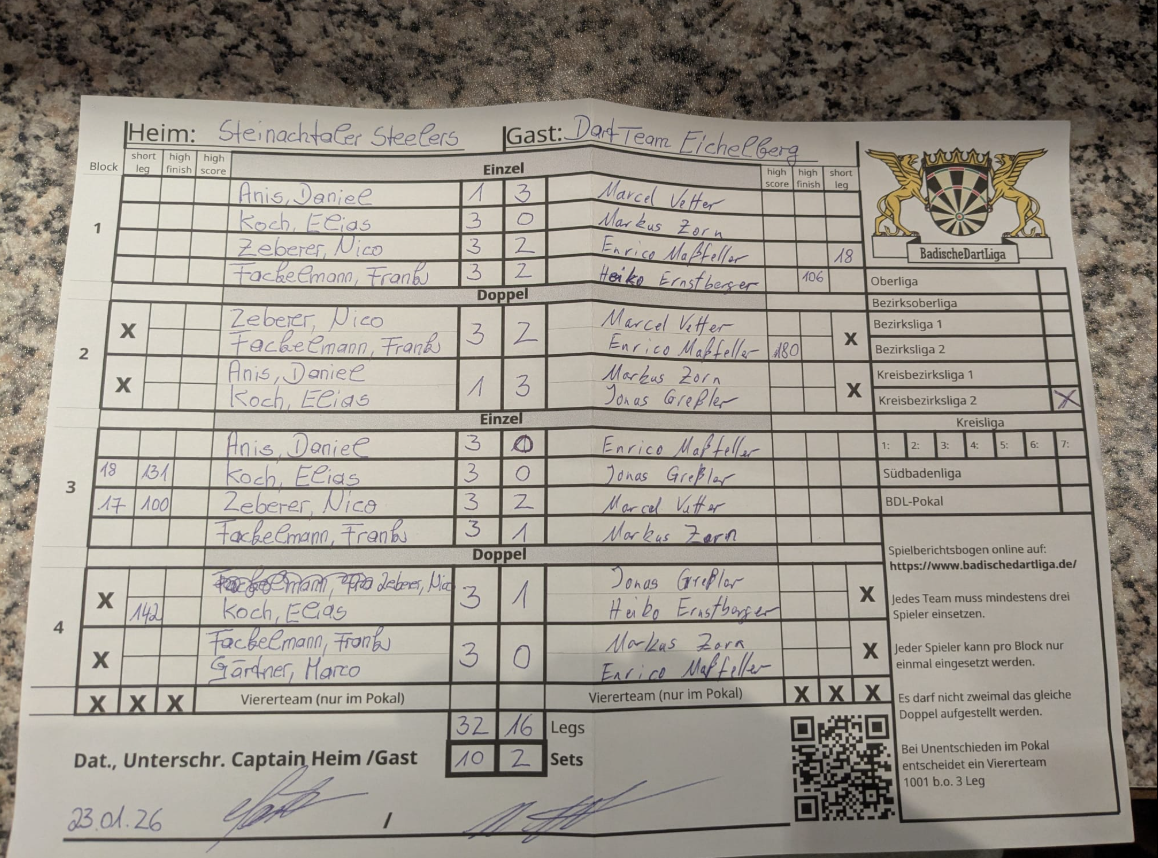 Heim: Steinachtaler Steelers Gast: Dart Team Eichelberg
Block short leg high finish high score Einzel high score high finish short leg
1
Anis, Daniel 1 3 Marcel Vetter
Koch, Elias 3 0 Markus Zorn
Zeberer, Nico 3 2 Enrico Maßfeller 18
Fackelmann, Frank 3 2 Heiko Ernstberger 106
Doppel
2
X Zeberer, Nico 3 2 Marcel Vetter X
Fackelmann, Frank Enrico Maßfeller 180
X Anis, Daniel 1 3 Markus Zorn X
Koch, Elias Jonas Greßler
Einzel
3
Anis, Daniel 3 0 Enrico Maßfeller
18 131 Koch, Elias 3 0 Jonas Greßler
17 100 Zeberer, Nico 3 2 Marcel Vetter
Fackelmann, Frank 3 1 Markus Zorn
Doppel
4
X Zeberer, Nico 3 1 Jonas Greßler X
142 Koch, Elias Heiko Ernstberger
X Fackelmann, Frank 3 0 Markus Zorn X
Gärdner, Marco Enrico Maßfeller
X X X Viererteam (nur im Pokal) Viererteam (nur im Pokal) X X X
32 16 Legs
10 2 Sets
Dat., Unterschr. Captain Heim /Gast
23.01.26 /
BadischeDartLiga
Oberliga
Bezirksoberliga
Bezirksliga 1
Bezirksliga 2
Kreisbezirksliga 1
Kreisbezirksliga 2 X
Kreisliga
1: 2: 3: 4: 5: 6: 7:
Südbadenliga
BDL-Pokal
Spielberichtsbogen online auf:
https://www.badischedartliga.de/
Jedes Team muss mindestens drei
Spieler einsetzen.
Jeder Spieler kann pro Block nur
einmal eingesetzt werden.
Es darf nicht zweimal das gleiche
Doppel aufgestellt werden.
Bei Unentschieden im Pokal
entscheidet ein Viererteam
1001 b.o. 3 Leg